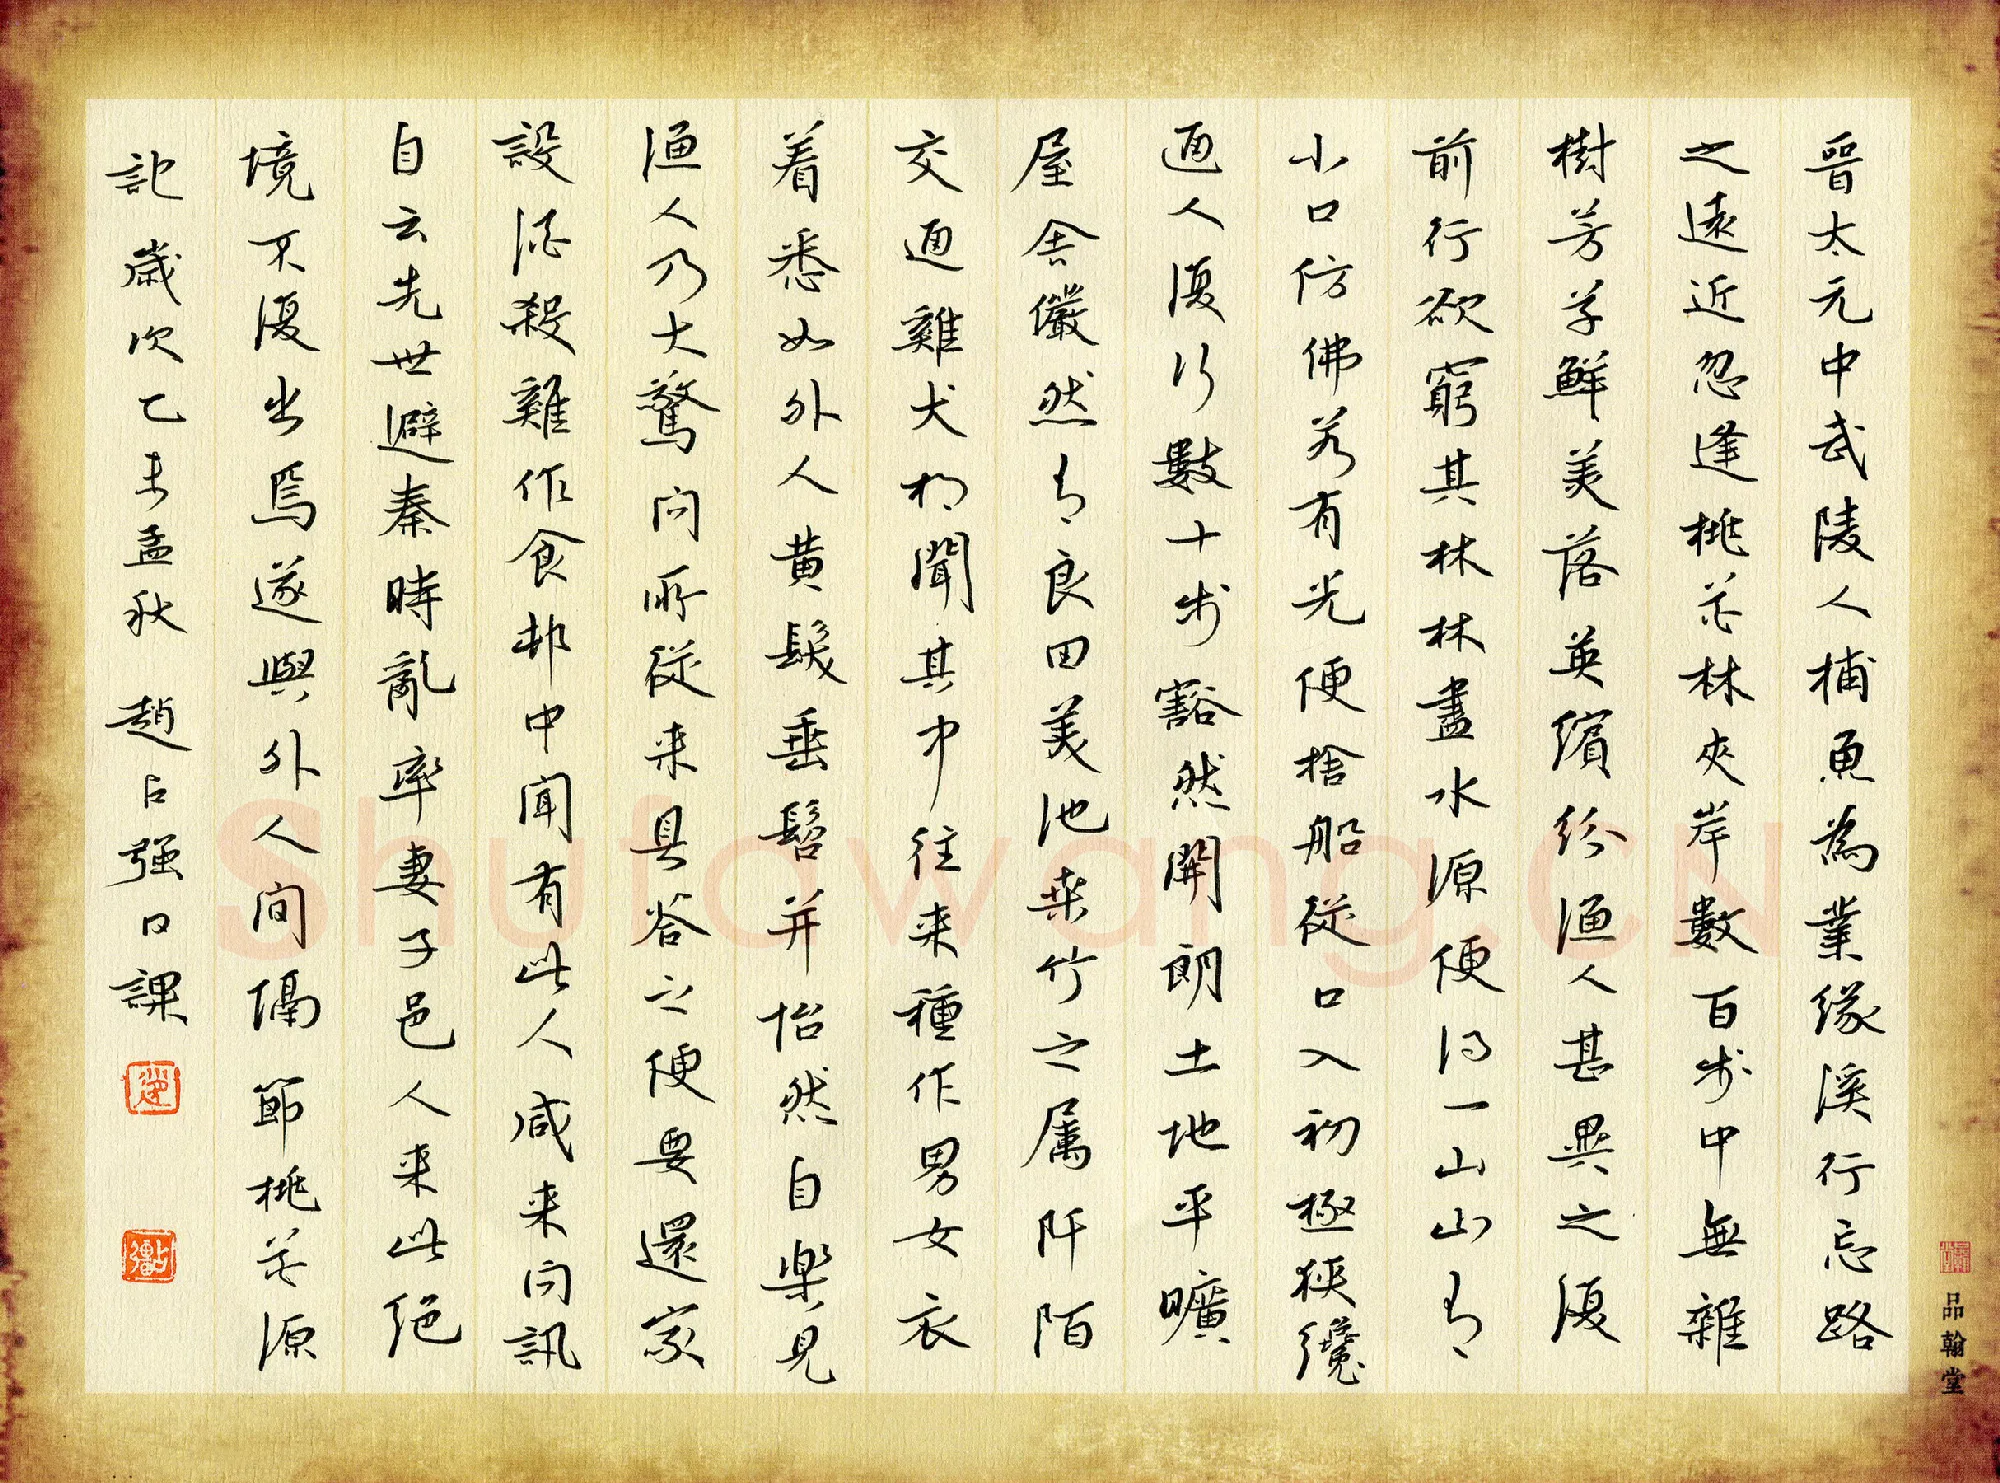 晉太元中武陵人捕魚為業緣溪行忘路
之遠近忽逢桃花林夾岸數百步中無雜
樹芳草鮮美落英繽紛漁人甚異之復
前行欲窮其林林盡水源便得一山山有
小口仿佛若有光便捨船從口入初極狹纔
通人復行數十步豁然開朗土地平曠
屋舍儼然有良田美池桑竹之属阡陌
交通雞犬相聞其中往来種作男女衣
着悉如外人黄髮垂髫并怡然自樂見
漁人乃大驚问所從来具答之便要還家
設酒殺雞作食邨中闻有此人咸来问訊
自云先世避秦時亂率妻子邑人来此绝
境不復出焉遂與外人间隔節桃花源
記歲次乙未孟秋 趙占强日課
品翰堂
Shufawang.CN